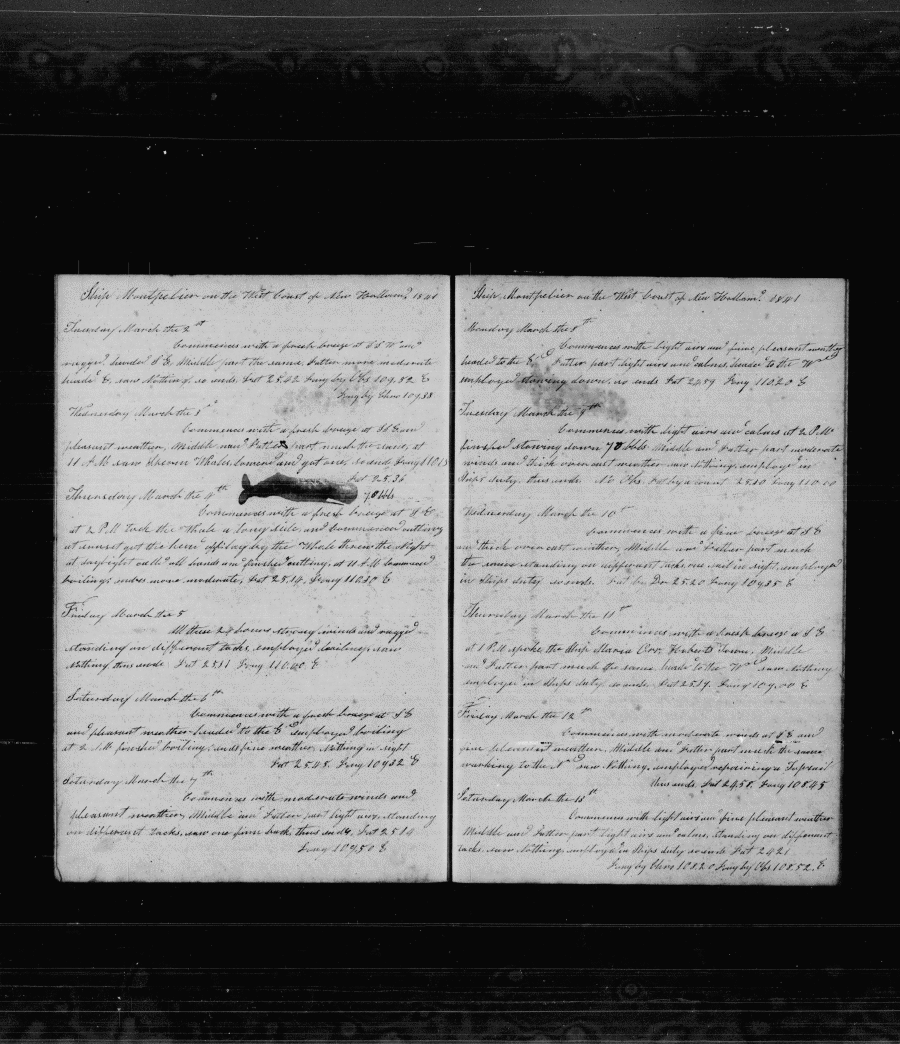 Ship Montpelier on the West Coast of New Holland 1841
Tuesday March the 2th
Commences with a fresh breeze at S S W and
rugged headed S E Middle part the same, Latter more moderate
headed E, saw Nothing, so ends Lat 25.42 Long by Obs 109.52 E
Long by Chro 109.38
Wednesday March the 3d
Commences with a fresh breeze at S E and
pleasant weather, Middle and Latter part much the same, at
11 A.M saw Sperm Whales lowered and got one, so ends Long 110.15
Lat 25.36
Thursday March the 4th
70 bbls
Commences with a fresh breeze at S E
at 2 P.M took the Whale a long side and commenced cutting
at sunset got the head off lay by the Whale threw the Night
at daylight called all hands and finished cutting, at 11 A.M Comenced
boiling; ends more moderate, Lat 25.14, Long 110.30 E
Friday March the 5
All these 24 hours strong winds and rugged
standing on different tacks, employed boiling, saw
Nothing thus ends Lat 25.11 Long 110.40 E
Saturday March the 6th
Commences with a fresh breeze at S E
and pleasant weather headed to the E employed boiling
at 2 A.M finished boiling; ends fine weather, Nothing in sight
Lat 25.48. Long 109.32 E
Saturday March the 7th
Commences with moderate winds and
pleasant weather, Middle and Latter part light airs, standing
on different tacks, saw one finn back, thus ends, Lat 25.14
Long 109.50 E
Ship Montpelier on the West Coast of New Holland 1841
Monday March the 8th
Commences with light airs and fine pleasant weather
headed to the E Latter part light airs and calms, headed to the Wd
employed stowing down, so ends Lat 24.59 Long 110.20 E
Tuesday March the 9th
Commences with light airs and calms at 2 P.M
finished stowing down 70 bbls Middle and Latter part moderate
winds and thick overcast weather saw Nothing, employed in
Ships duty, thus ends. No Obs. Lat by account 25.10 Long 110.00
Wednesday March the 10th
Commences with a fine breeze at S E
and thick overcast weather, Middle and Latter part much
the same standing on different tacks one sail in sight, employed
in Ships duty so ends. Lat by Do 25.20 Long 109.35 E
Thursday March the 11th
Commences with a fresh breeze at S E
at 1 P.M spoke the Ship Maria Orr, Hobarts Town, Middle
and Latter part much the same, headed to the Wd saw Nothing
employed in ships duty so ends Lat 25.19. Long 109.00 E
Friday March the 12th
Commences with moderate winds at S E and
fine pleasant weather, Middle and Latter part much the same
working to the Nd saw Nothing, employed repairing a Topsail
thus ends. Lat 24.58. Long 108.45
Saturday March the 13th
Commences with light airs and fine pleasant weather
Middle and Latter part light airs and calms, standing on different
tacks, saw Nothing, employed in Ships duty so ends Lat 24.21
Long by Chro 108.20 Long by Obs 108.52. E